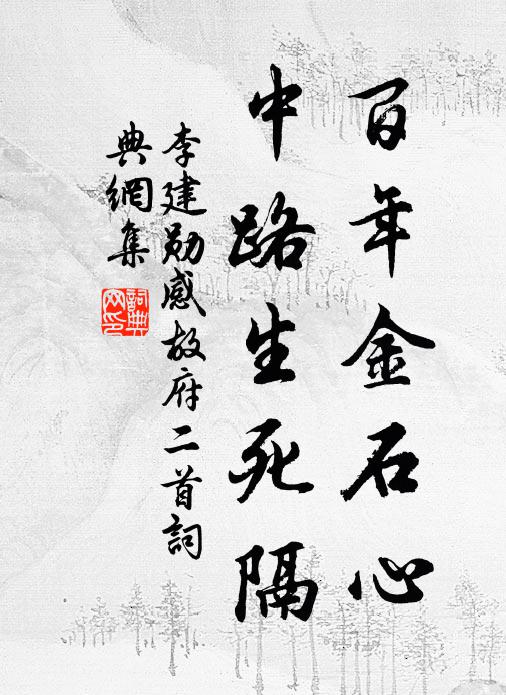 百年金石心
中路生死隔
李建勋感故府二首詞
典網集
詞典
网印